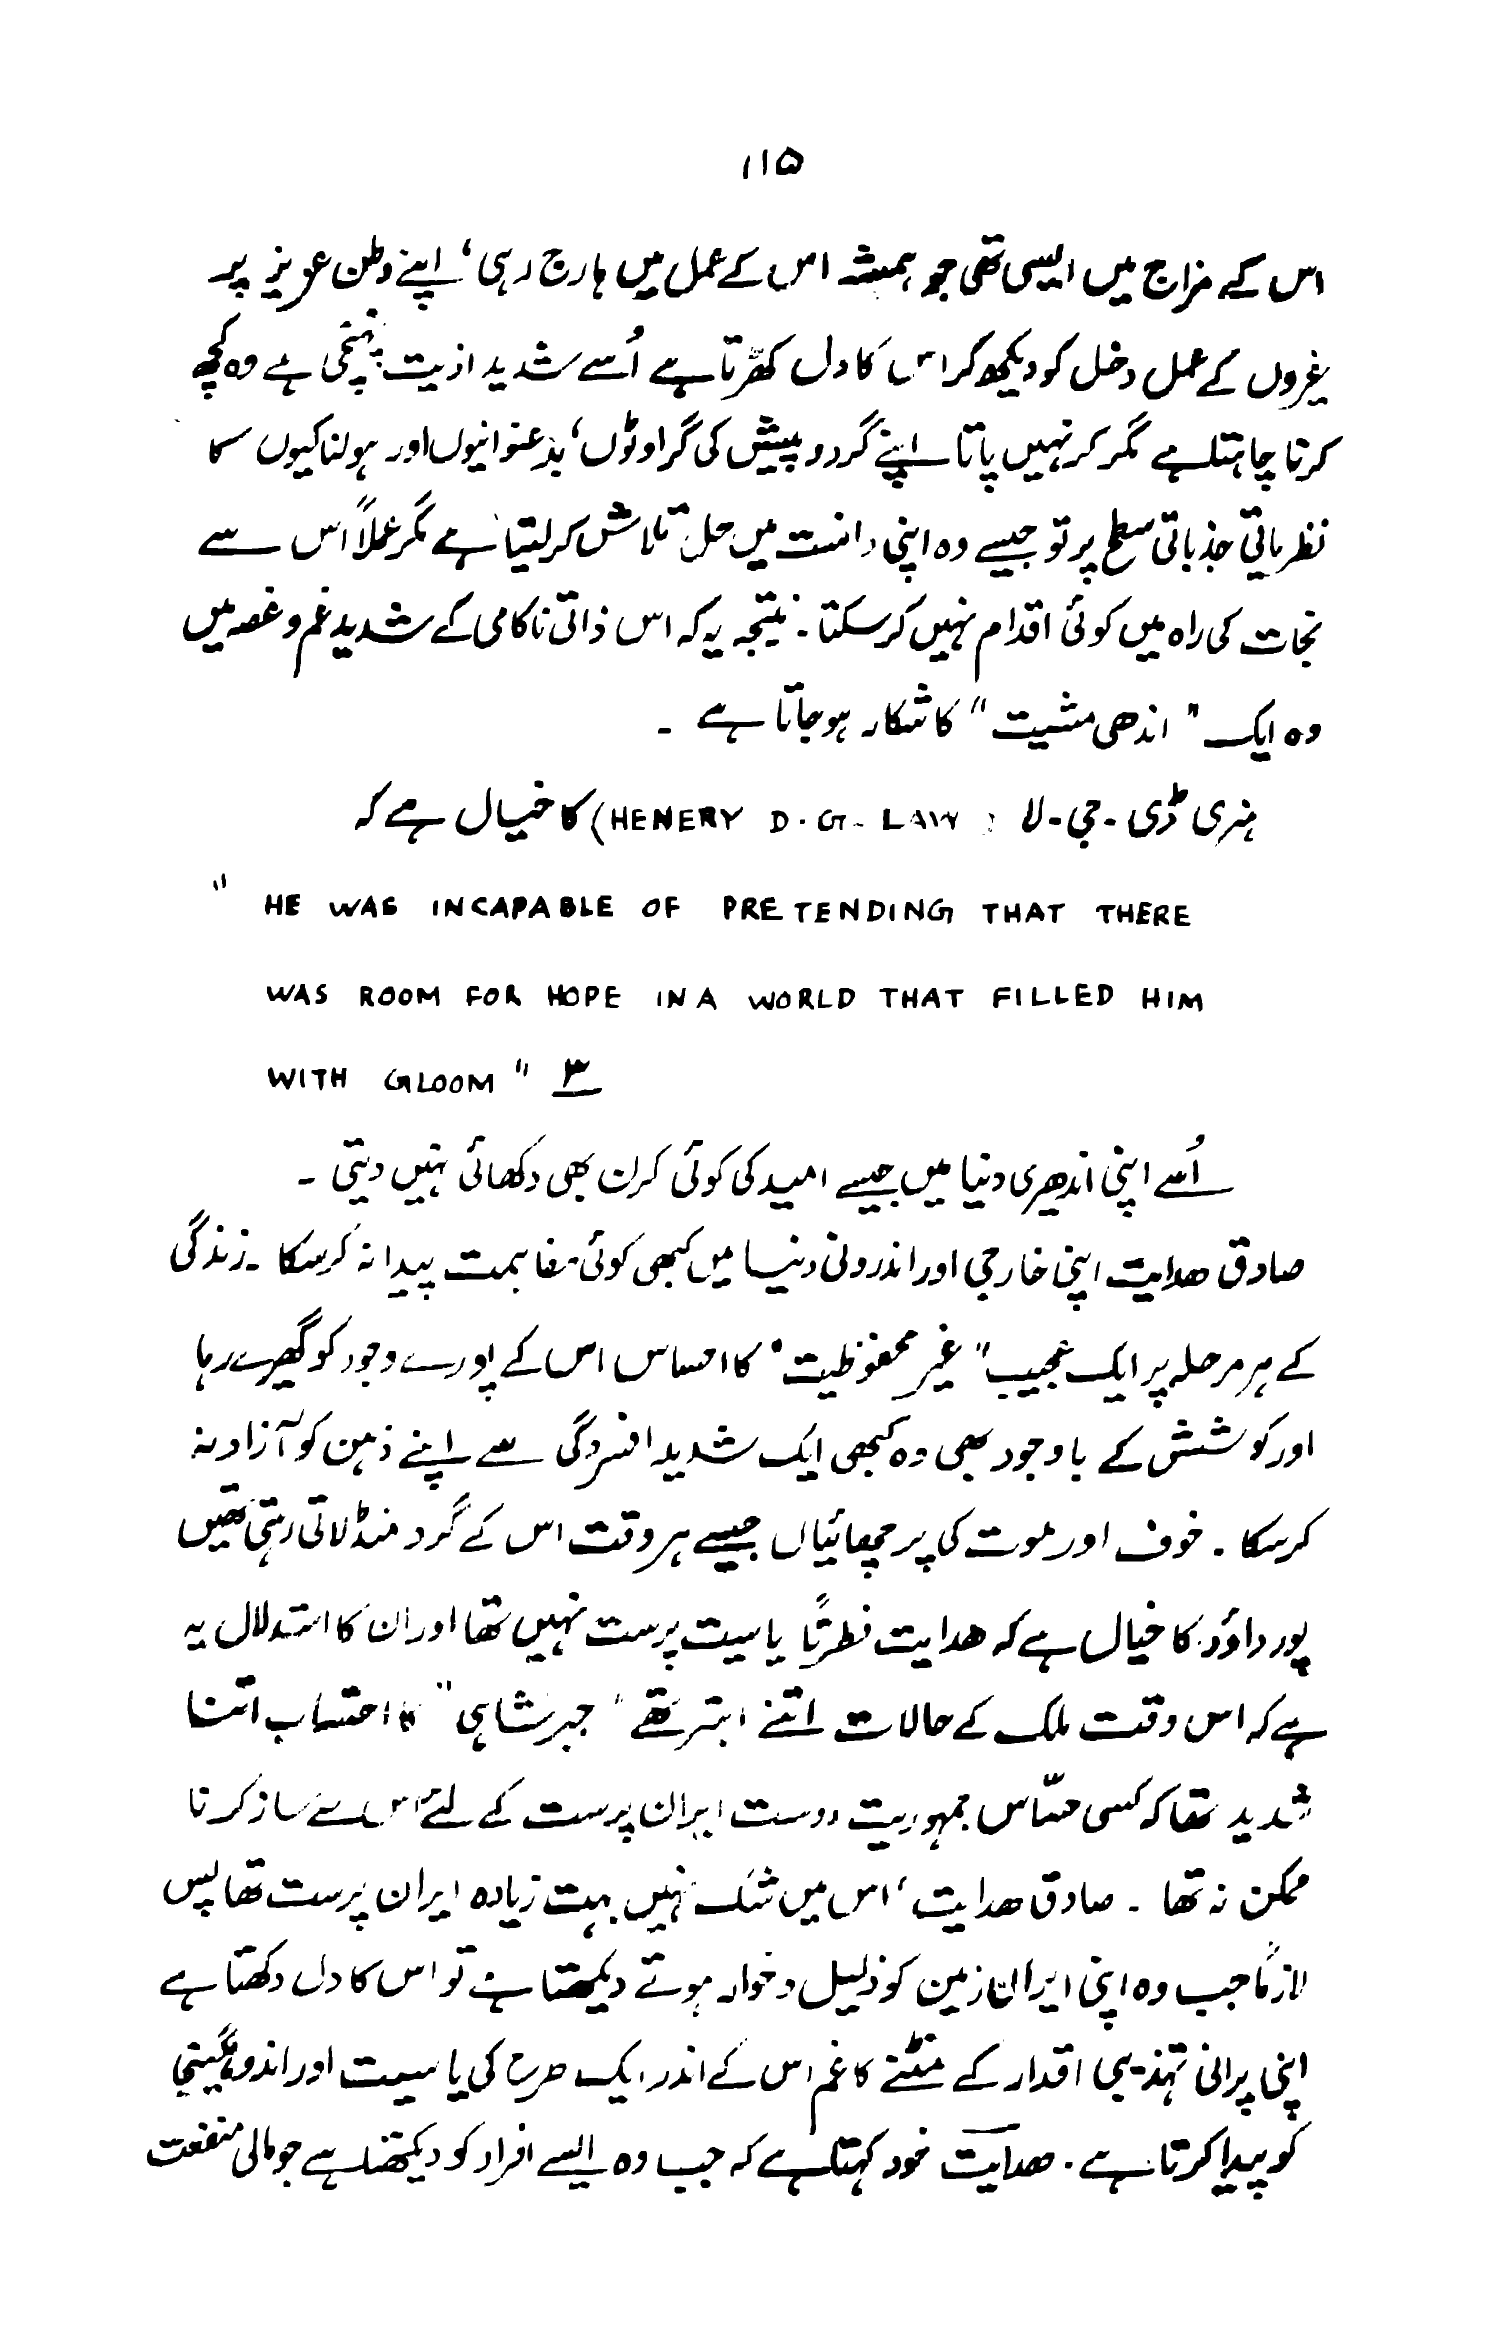 ۱۱۵
اس کے مزاج میں ایسی تھی جو ہمیشہ اس کے عمل میں ہارج رہی، اپنے وطن عزیز پر
غیروں کے عمل دخل کو دیکھ کر اس کا دل کھڑتا ہے اُسے شدید اذیت پہنچتی ہے وہ کچھ
کرنا چاہتا ہے مگر کر نہیں پاتا اپنے گرد و پیش کی گراوٹوں، بدعنوانیوں اور ہولناکیوں کا
نظریاتی جذباتی سطح پر تو جیسے وہ اپنی دانست میں حل تلاش کر لیتا ہے مگر عملاً اس سے
نجات کی راہ میں کوئی اقدام نہیں کر سکتا۔ نتیجہ یہ کہ اس ذاتی ناکامی کے شدید غم و غصہ میں
وہ ایک " اندھی مشیت " کا شکار ہو جاتا ہے ۔
ہنری ڈی۔ جی۔ لا (HENERY D. G. LAW) کا خیال ہے کہ
" HE WAS INCAPABLE OF PRETENDING THAT THERE
WAS ROOM FOR HOPE IN A WORLD THAT FILLED HIM
WITH GLOOM " ۳
اُسے اپنی اندھیری دنیا میں جیسے امید کی کوئی کرن بھی دکھائی نہیں دیتی ۔
صادق ھدایت اپنی خارجی اور اندرونی دنیا میں کبھی کوئی مفاہمت پیدا نہ کر سکا ۔ زندگی
کے ہر مرحلہ پر ایک عجیب " غیر محفوظیت " کا احساس اس کے پورے وجود کو گھیرے رہا
اور کوشش کے باوجود بھی وہ کبھی ایک شدید افسردگی سے اپنے ذہن کو آزاد نہ
کر سکا ۔ خوف اور موت کی پرچھائیاں جیسے ہر وقت اس کے گرد منڈلاتی رہتی تھیں
پور داؤد کا خیال ہے کہ ھدایت فطرتاً یاسیت پرست نہیں تھا اور ان کا استدلال یہ
ہے کہ اس وقت ملک کے حالات اتنے ابتر تھے " جبر شاہی " کا احتساب اتنا
شدید تھا کہ کسی حسّاس جمہوریت دوست ایران پرست کے لئے اس سے ساز کرنا
ممکن نہ تھا ۔ صادق ھدایت، اس میں شک نہیں بہت زیادہ ایران پرست تھا پس
لازماً جب وہ اپنی ایران زمین کو ذلیل و خوار ہوتے دیکھتا ہے تو اس کا دل دکھتا ہے
اپنی پرانی تہذیبی اقدار کے مٹنے کا غم اس کے اندر ایک طرح کی یاسیت اور اندوہگینی
کو پیدا کرتا ہے ۔ ھدایت خود کہتا ہے کہ جب وہ ایسے افراد کو دیکھتا ہے جو مالی منفعت